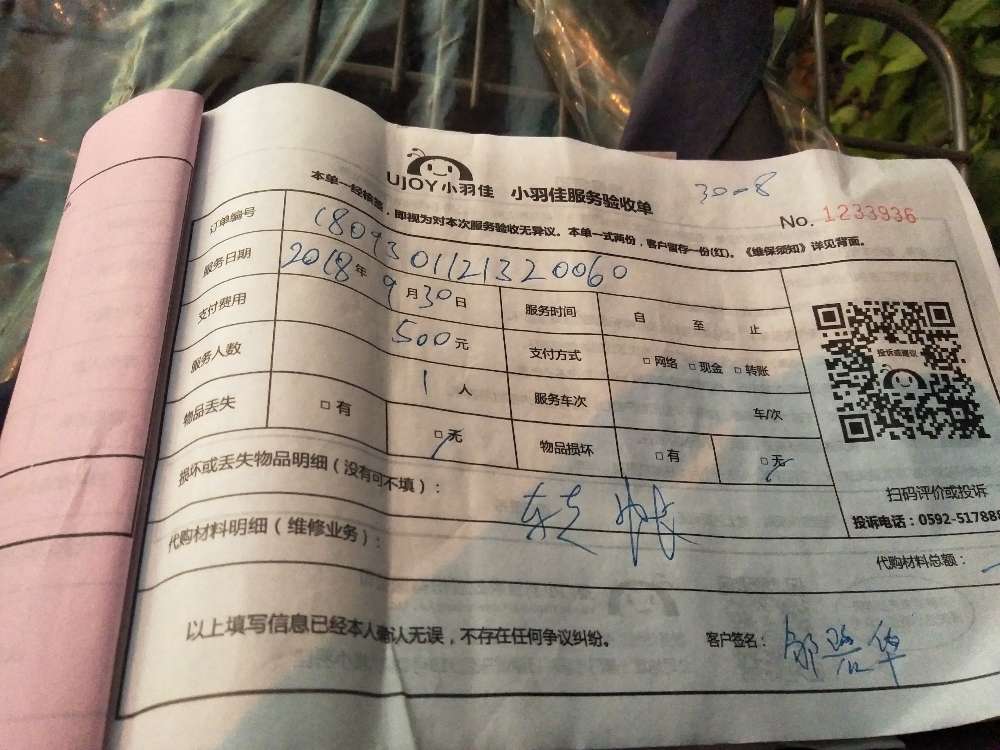 UJOY小羽佳 小羽佳服务验收单
30-8
No. 1233936
本单一经核签，即视为对本次服务验收无异议。本单一式两份，客户留存一份(红)。《维保须知》详见背面。
订单编号 180930112132 0060
服务日期 2018年9月30日 服务时间 自 至 止
支付费用 500元 支付方式 □网络 □现金 □转账
服务人数 1人 服务车次 车/次
物品丢失 □有 □无 物品损坏 □有 □无
投诉或建议
扫码评价或投诉
投诉电话：0592-517888
损坏或丢失物品明细（没有可不填）：
代购材料明细（维修业务）：
代购材料总额：
以上填写信息已经本人确认无误，不存在任何争议纠纷。
客户签名：